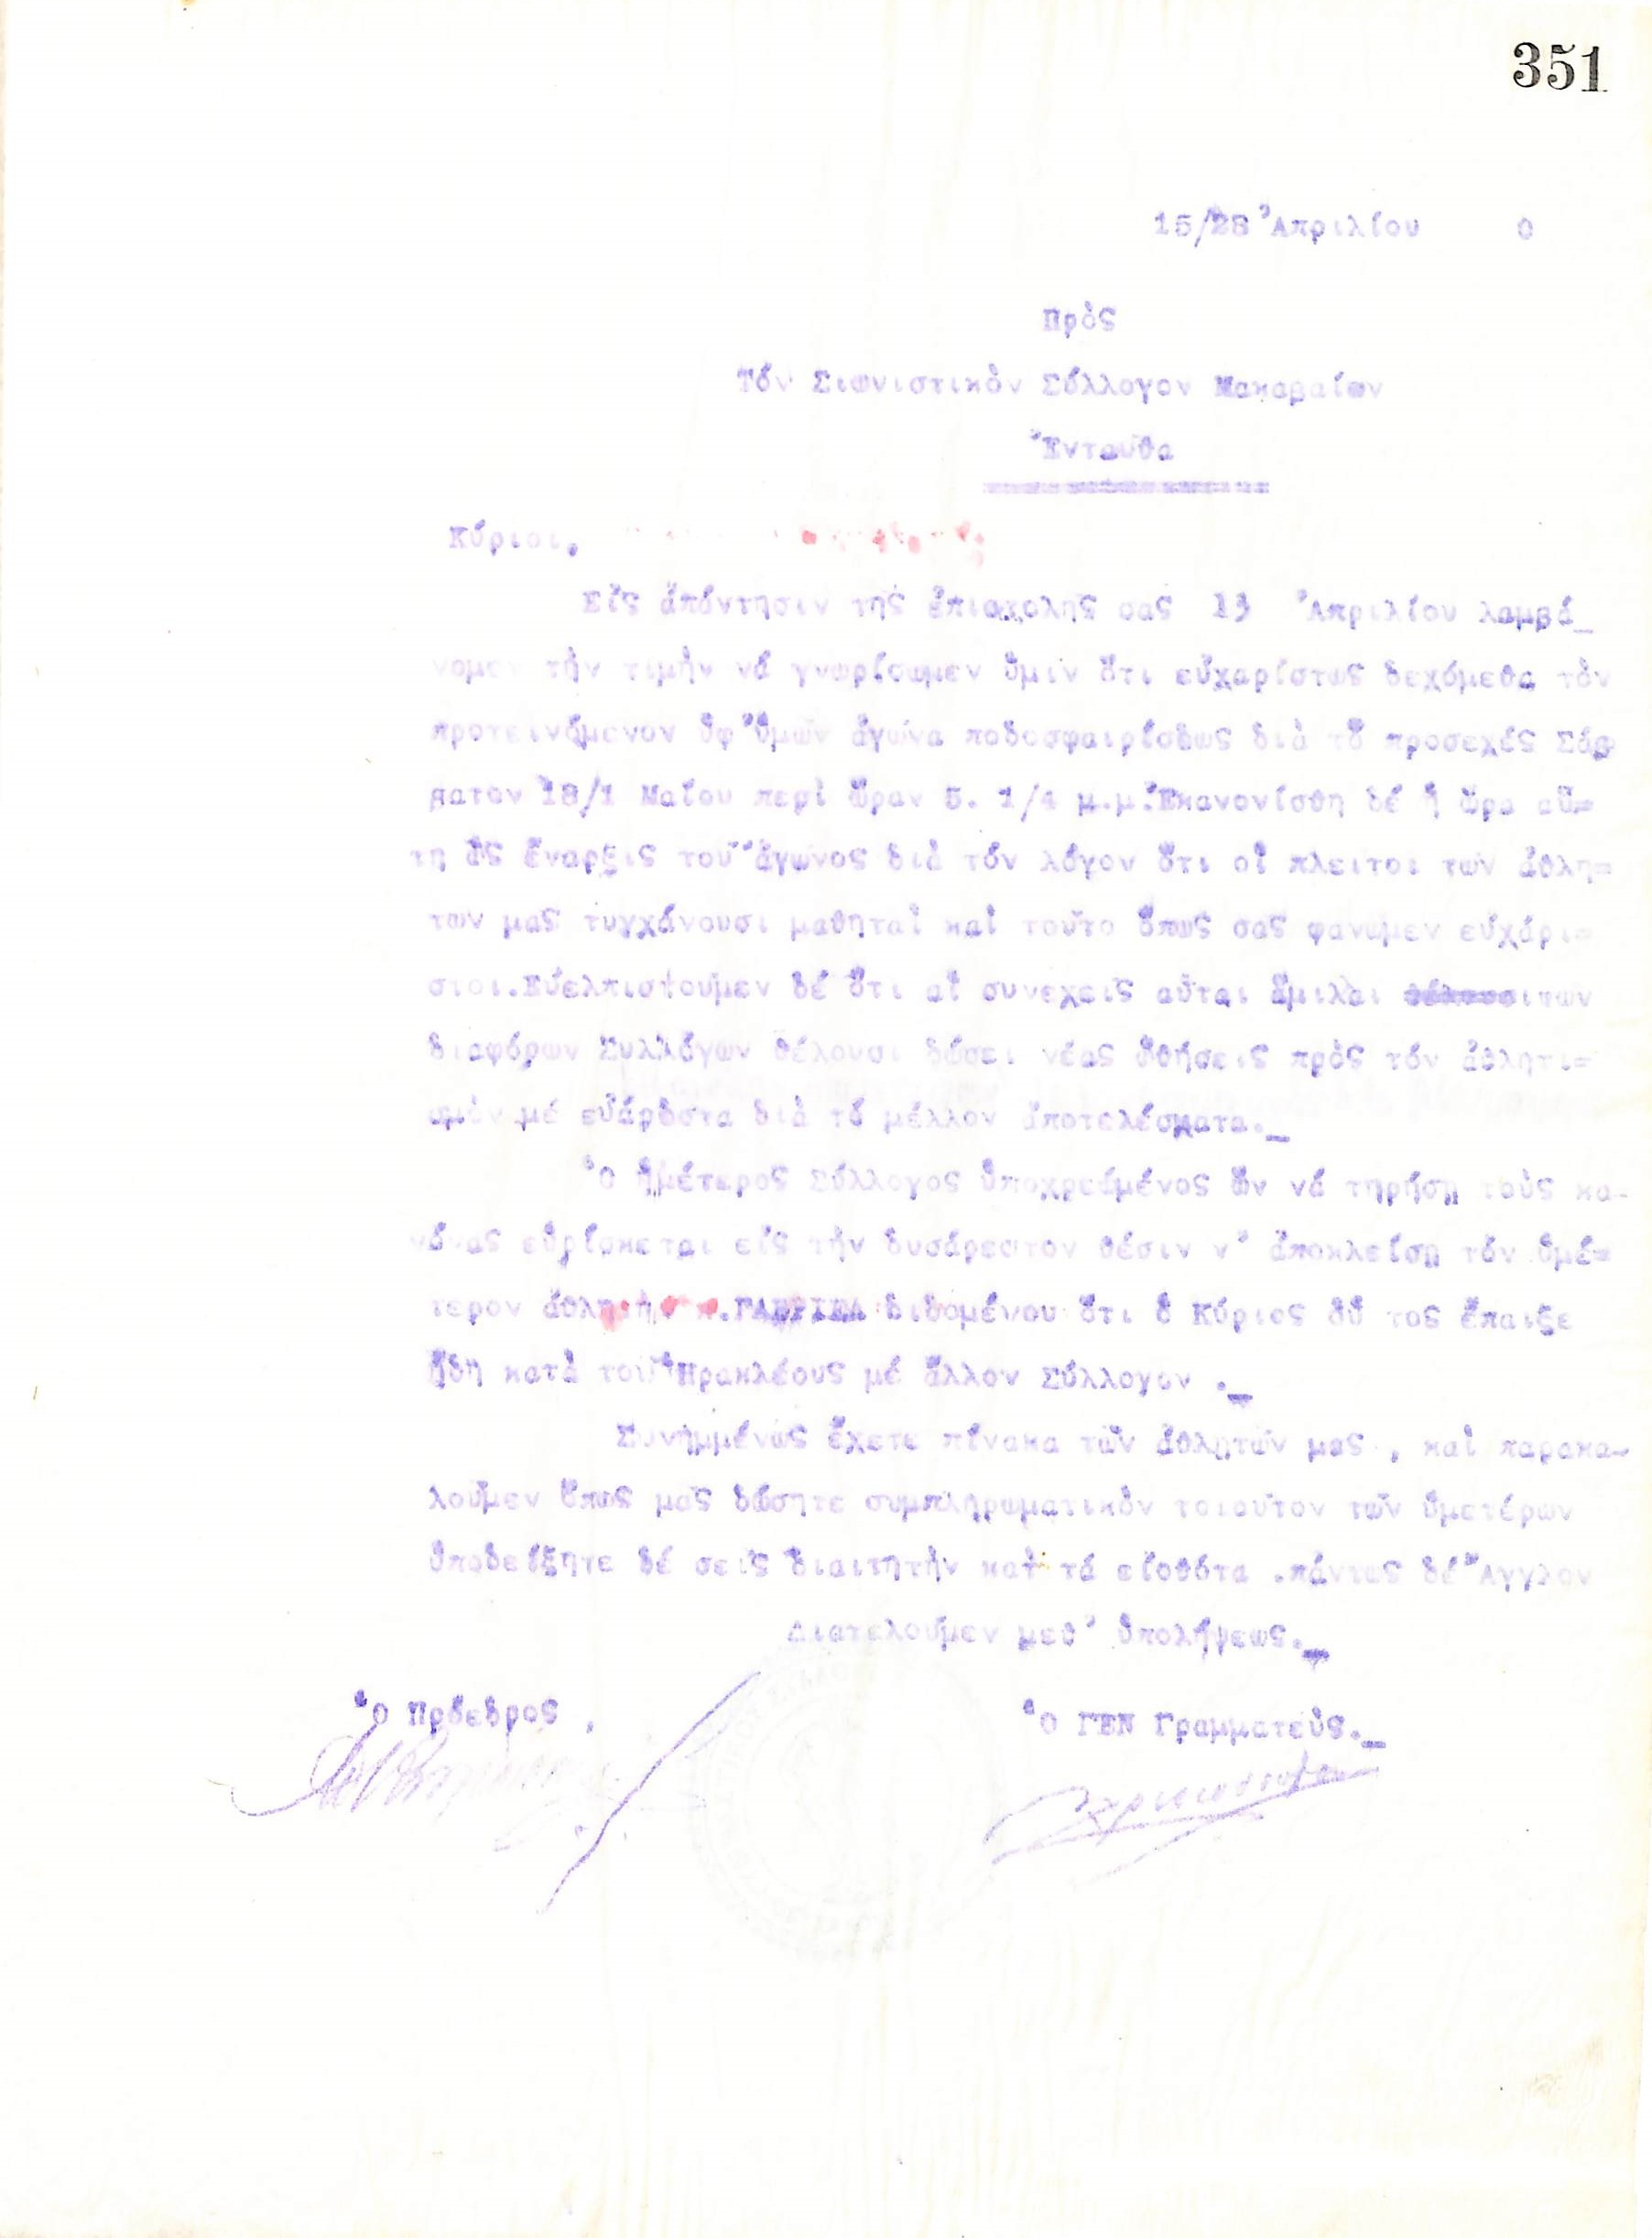 351
15/28 Ἀπριλίου 0
Πρὸς
Τόν Σιωνιστικὸν Σύλλογον Μακαβαίων
Ἐνταῦθα
Κύριοι,
Εἰς ἀπάντησιν τῆς ἐπισχολῆς σας 13 Ἀπριλίου λαμβά_
νομεν τὴν τιμὴν νά γνωρίσωμεν ὑμιν ὅτι εὐχαρίστως δεχόμεθα τὸν
προτεινόμενον ὑφ'ὑμῶν ἀγώνα ποδοσφαιρίσεως διὰ τὸ προσεχές Σάβ
βατον 18/1 Μαΐου περὶ ὥραν 5. 1/4 μ.μ.Ἐκανονίσθη δέ ἡ ὥρα αὕ=
τη ὡς ἔναρξις τοῦ ἀγῶνος διὰ τόν λόγον ὅτι οἱ πλειτοι των ἀθλη=
των μας τυγχάνουσι μαθηταὶ καὶ τοῦτο ὅπως σας φανῶμεν εὐχάρι=
στοι.Εὐελπιστοῦμεν δέ ὅτι αἱ συνεχεις αὗται ἅμιλαι των
διαφόρων Συλλόγων θέλουσι δώσει νέας ὠθήσεις πρὸς τόν ἀθλητι=
σμὸν μέ εὐάρεστα διὰ τό μέλλον ἀποτελέσματα._
Ὁ ἡμέτερος Σύλλογος ὑποχρεώμένος ὤν νά τηρήσῃ τοὺς κα-
νόνας εὑρίσκεται εἰς τὴν δυσάρεστον θέσιν ν' ἀποκλείσῃ τόν ὑμέ=
τερον ἀθλητὴν κ.ΓΑΒΡΙΕΛ διδομένου ὅτι ὁ Κύριος οὗ τος ἔπαιξε
ἤδη κατὰ τοῦ Ἡρακλέους μέ ἄλλον Σύλλογον ._
Συνημμένως ἔχετε πίνακα τῶν ἀθλητῶν μας , καὶ παρακα-
λοῦμεν ὅπως μας δώσητε συμπληρωματικὸν τοιοῦτον τῶν ὑμετέρων
ὑποδείξητε δέ σεῖς διαιτητὴν κατ τά εἰοθότα .πάντως δέ Ἄγγλον
Διατελοῦμεν μεθ' ὑπολήψεως._
Ὁ Πρόεδρος ,
Ὁ ΓΕΝ Γραμματεὺς._